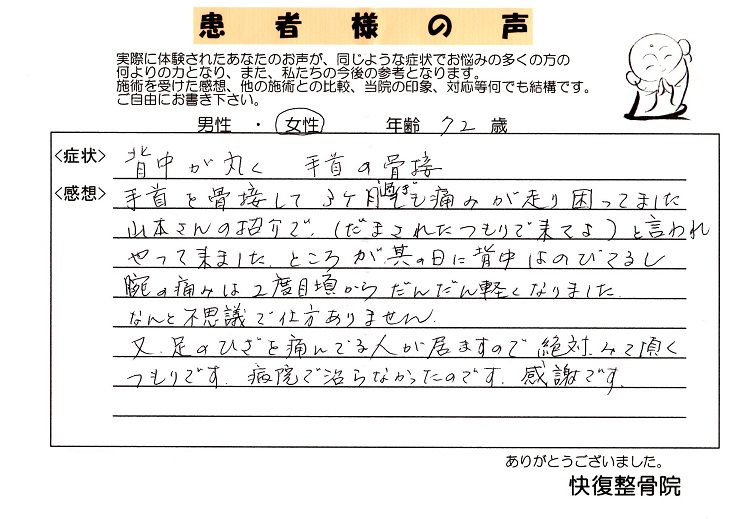 患者様の声
実際に体験されたあなたのお声が、同じような症状でお悩みの多くの方の
何よりの力となり、また、私たちの今後の参考となります。
施術を受けた感想、他の施術との比較、当院の印象、対応等何でも結構です。
ご自由にお書き下さい。
男性 ・ 女性 年齢 72 歳
<症状> 背中が丸く 手首の骨接
<感想> 手首を骨接して3ケ月過ぎても痛みが走り困ってました
山本さんの紹介で、(だまされたつもりで来てよ)と言われ
やって来ました。ところが其の日に背中はのびてるし
腕の痛みは2度目頃からだんだん軽くなりました。
なんと不思議で仕方ありません。
又、足のひざを痛んでる人が居ますので絶対、みて頂く
つもりです。病院で治らなかったのです。感謝です。
ありがとうございました。
快復整骨院